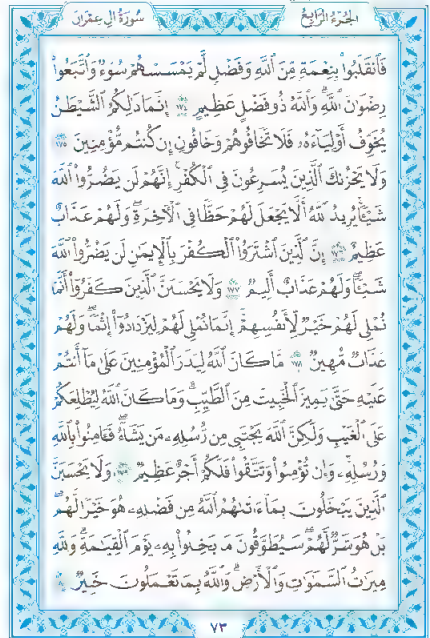 الجزء الرابع سورة آل عمران
فَٱنقَلَبُوا۟ بِنِعْمَةٍ مِّنَ ٱللَّهِ وَفَضْلٍ لَّمْ يَمْسَسْهُمْ سُوٓءٌ وَٱتَّبَعُوا۟
رِضْوَٰنَ ٱللَّهِ وَٱللَّهُ ذُو فَضْلٍ عَظِيمٍ ١٧٤ إِنَّمَا ذَٰلِكُمُ ٱلشَّيْطَٰنُ
يُخَوِّفُ أَوْلِيَآءَهُۥ فَلَا تَخَافُوهُمْ وَخَافُونِ إِن كُنتُم مُّؤْمِنِينَ ١٧٥
وَلَا يَحْزُنكَ ٱلَّذِينَ يُسَٰرِعُونَ فِى ٱلْكُفْرِ إِنَّهُمْ لَن يَضُرُّوا۟ ٱللَّهَ
شَيْـًٔا يُرِيدُ ٱللَّهُ أَلَّا يَجْعَلَ لَهُمْ حَظًّا فِى ٱلْءَاخِرَةِ وَلَهُمْ عَذَابٌ
عَظِيمٌ ١٧٦ إِنَّ ٱلَّذِينَ ٱشْتَرَوُا۟ ٱلْكُفْرَ بِٱلْإِيمَٰنِ لَن يَضُرُّوا۟ ٱللَّهَ
شَيْـًٔا وَلَهُمْ عَذَابٌ أَلِيمٌ ١٧٧ وَلَا يَحْسَبَنَّ ٱلَّذِينَ كَفَرُوٓا۟ أَنَّمَا
نُمْلِى لَهُمْ خَيْرٌ لِّأَنفُسِهِمْ إِنَّمَا نُمْلِى لَهُمْ لِيَزْدَادُوٓا۟ إِثْمًا وَلَهُمْ
عَذَابٌ مُّهِينٌ ١٧٨ مَّا كَانَ ٱللَّهُ لِيَذَرَ ٱلْمُؤْمِنِينَ عَلَىٰ مَآ أَنتُمْ
عَلَيْهِ حَتَّىٰ يَمِيزَ ٱلْخَبِيثَ مِنَ ٱلطَّيِّبِ وَمَا كَانَ ٱللَّهُ لِيُطْلِعَكُمْ
عَلَى ٱلْغَيْبِ وَلَٰكِنَّ ٱللَّهَ يَجْتَبِى مِن رُّسُلِهِۦ مَن يَشَآءُ فَـَٔامِنُوا۟ بِٱللَّهِ
وَرُسُلِهِۦ وَإِن تُؤْمِنُوا۟ وَتَتَّقُوا۟ فَلَكُمْ أَجْرٌ عَظِيمٌ ١٧٩ وَلَا يَحْسَبَنَّ
ٱلَّذِينَ يَبْخَلُونَ بِمَآ ءَاتَىٰهُمُ ٱللَّهُ مِن فَضْلِهِۦ هُوَ خَيْرًا لَّهُم
بَلْ هُوَ شَرٌّ لَّهُمْ سَيُطَوَّقُونَ مَا بَخِلُوا۟ بِهِۦ يَوْمَ ٱلْقِيَٰمَةِ وَلِلَّهِ
مِيرَٰثُ ٱلسَّمَٰوَٰتِ وَٱلْأَرْضِ وَٱللَّهُ بِمَا تَعْمَلُونَ خَبِيرٌ ١٨٠
٧٣